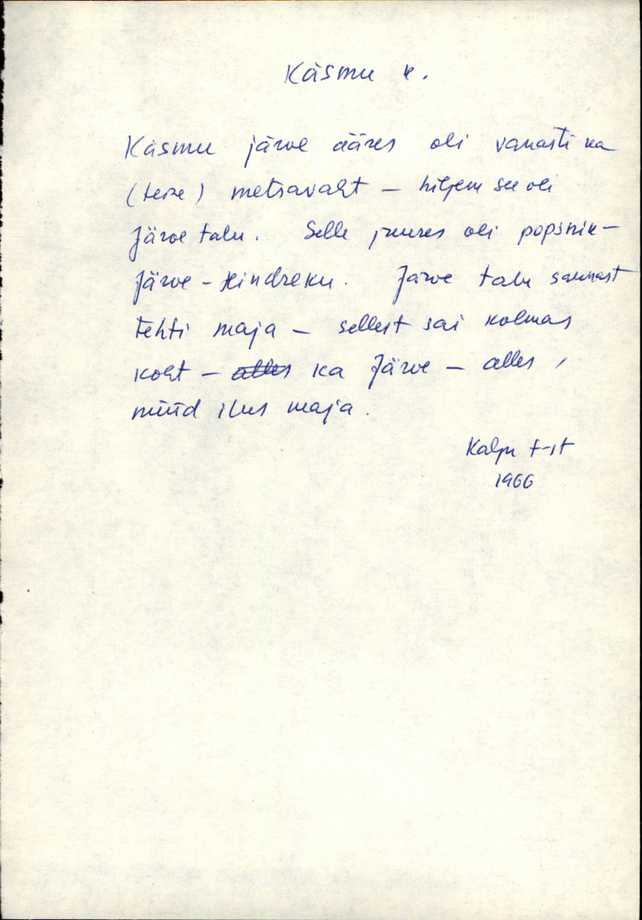 Käsmu k.
Käsmu järve ääres oli vanasti ka
(teine) metsavaht – hiljem see oli
Järve talu. Selle juures oli popsnik –
Järve-Hindreku. Järve talu saunast
tehti maja – sellest sai kolmas
koht – alles ka Järve – alles,
nüüd ilus maja.
Kalju t-st
1966